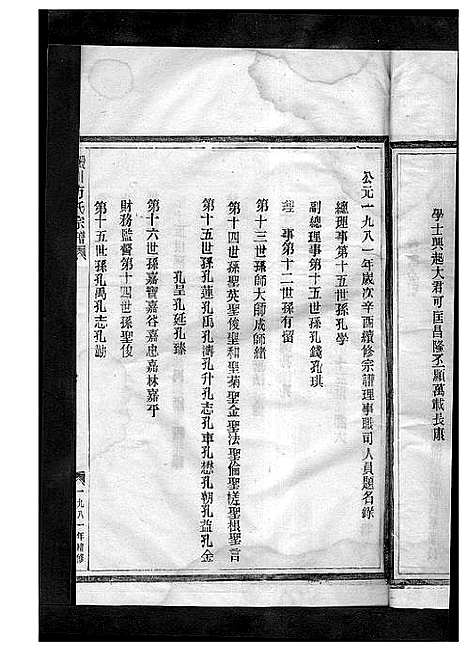 學士興起大君可匡昌隆丕顯萬載長康
公元一九八一年歲次辛酉續修宗譜理事職司人員題名錄
總理事第十五世孫孔學
副總理事第十五世孫孔錢孔琪
理事第十二世孫有留
第十三世孫師大師成師緒
第十四世孫聖英聖俊聖和聖菊聖金聖法聖倫聖槎聖根聖言
第十五世孫孔蓮孔禹孔濤孔升孔志孔車孔懋孔朝孔益孔金
孔皇孔延孔臻
第十六世孫嘉寶嘉谷嘉忠嘉林嘉平
財務監督第十四世孫聖俊
第十五世孫孔禹孔志孔
川方氏宗譜
一九八一年續修